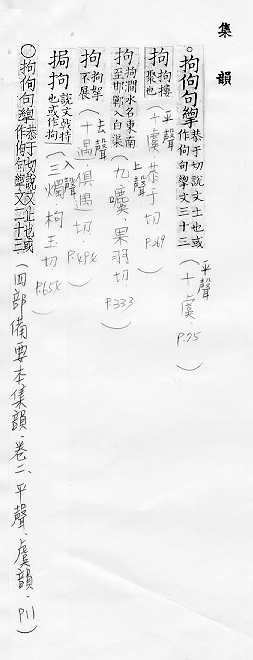 集韻
○拘佝句㩴恭于切說文止也或作佝句㩴文三十三(平聲 十虞．P.75)
拘拘摟聚也(平聲 十虞 恭于切 P.269)
拘拘澗水名東南至邯鄲入白渠(上聲 九噳．果羽切．P.333)
拘拘摯不展(去聲 十遇．俱遇切．P.494)
挶拘說文戟持也或作拘(入聲 三燭 拘玉切 P.654)
○拘佝句㩴恭于切說文止也或作佝句㩴文二十三(四部備要本集韻．卷二．平聲．虞韻．P11)